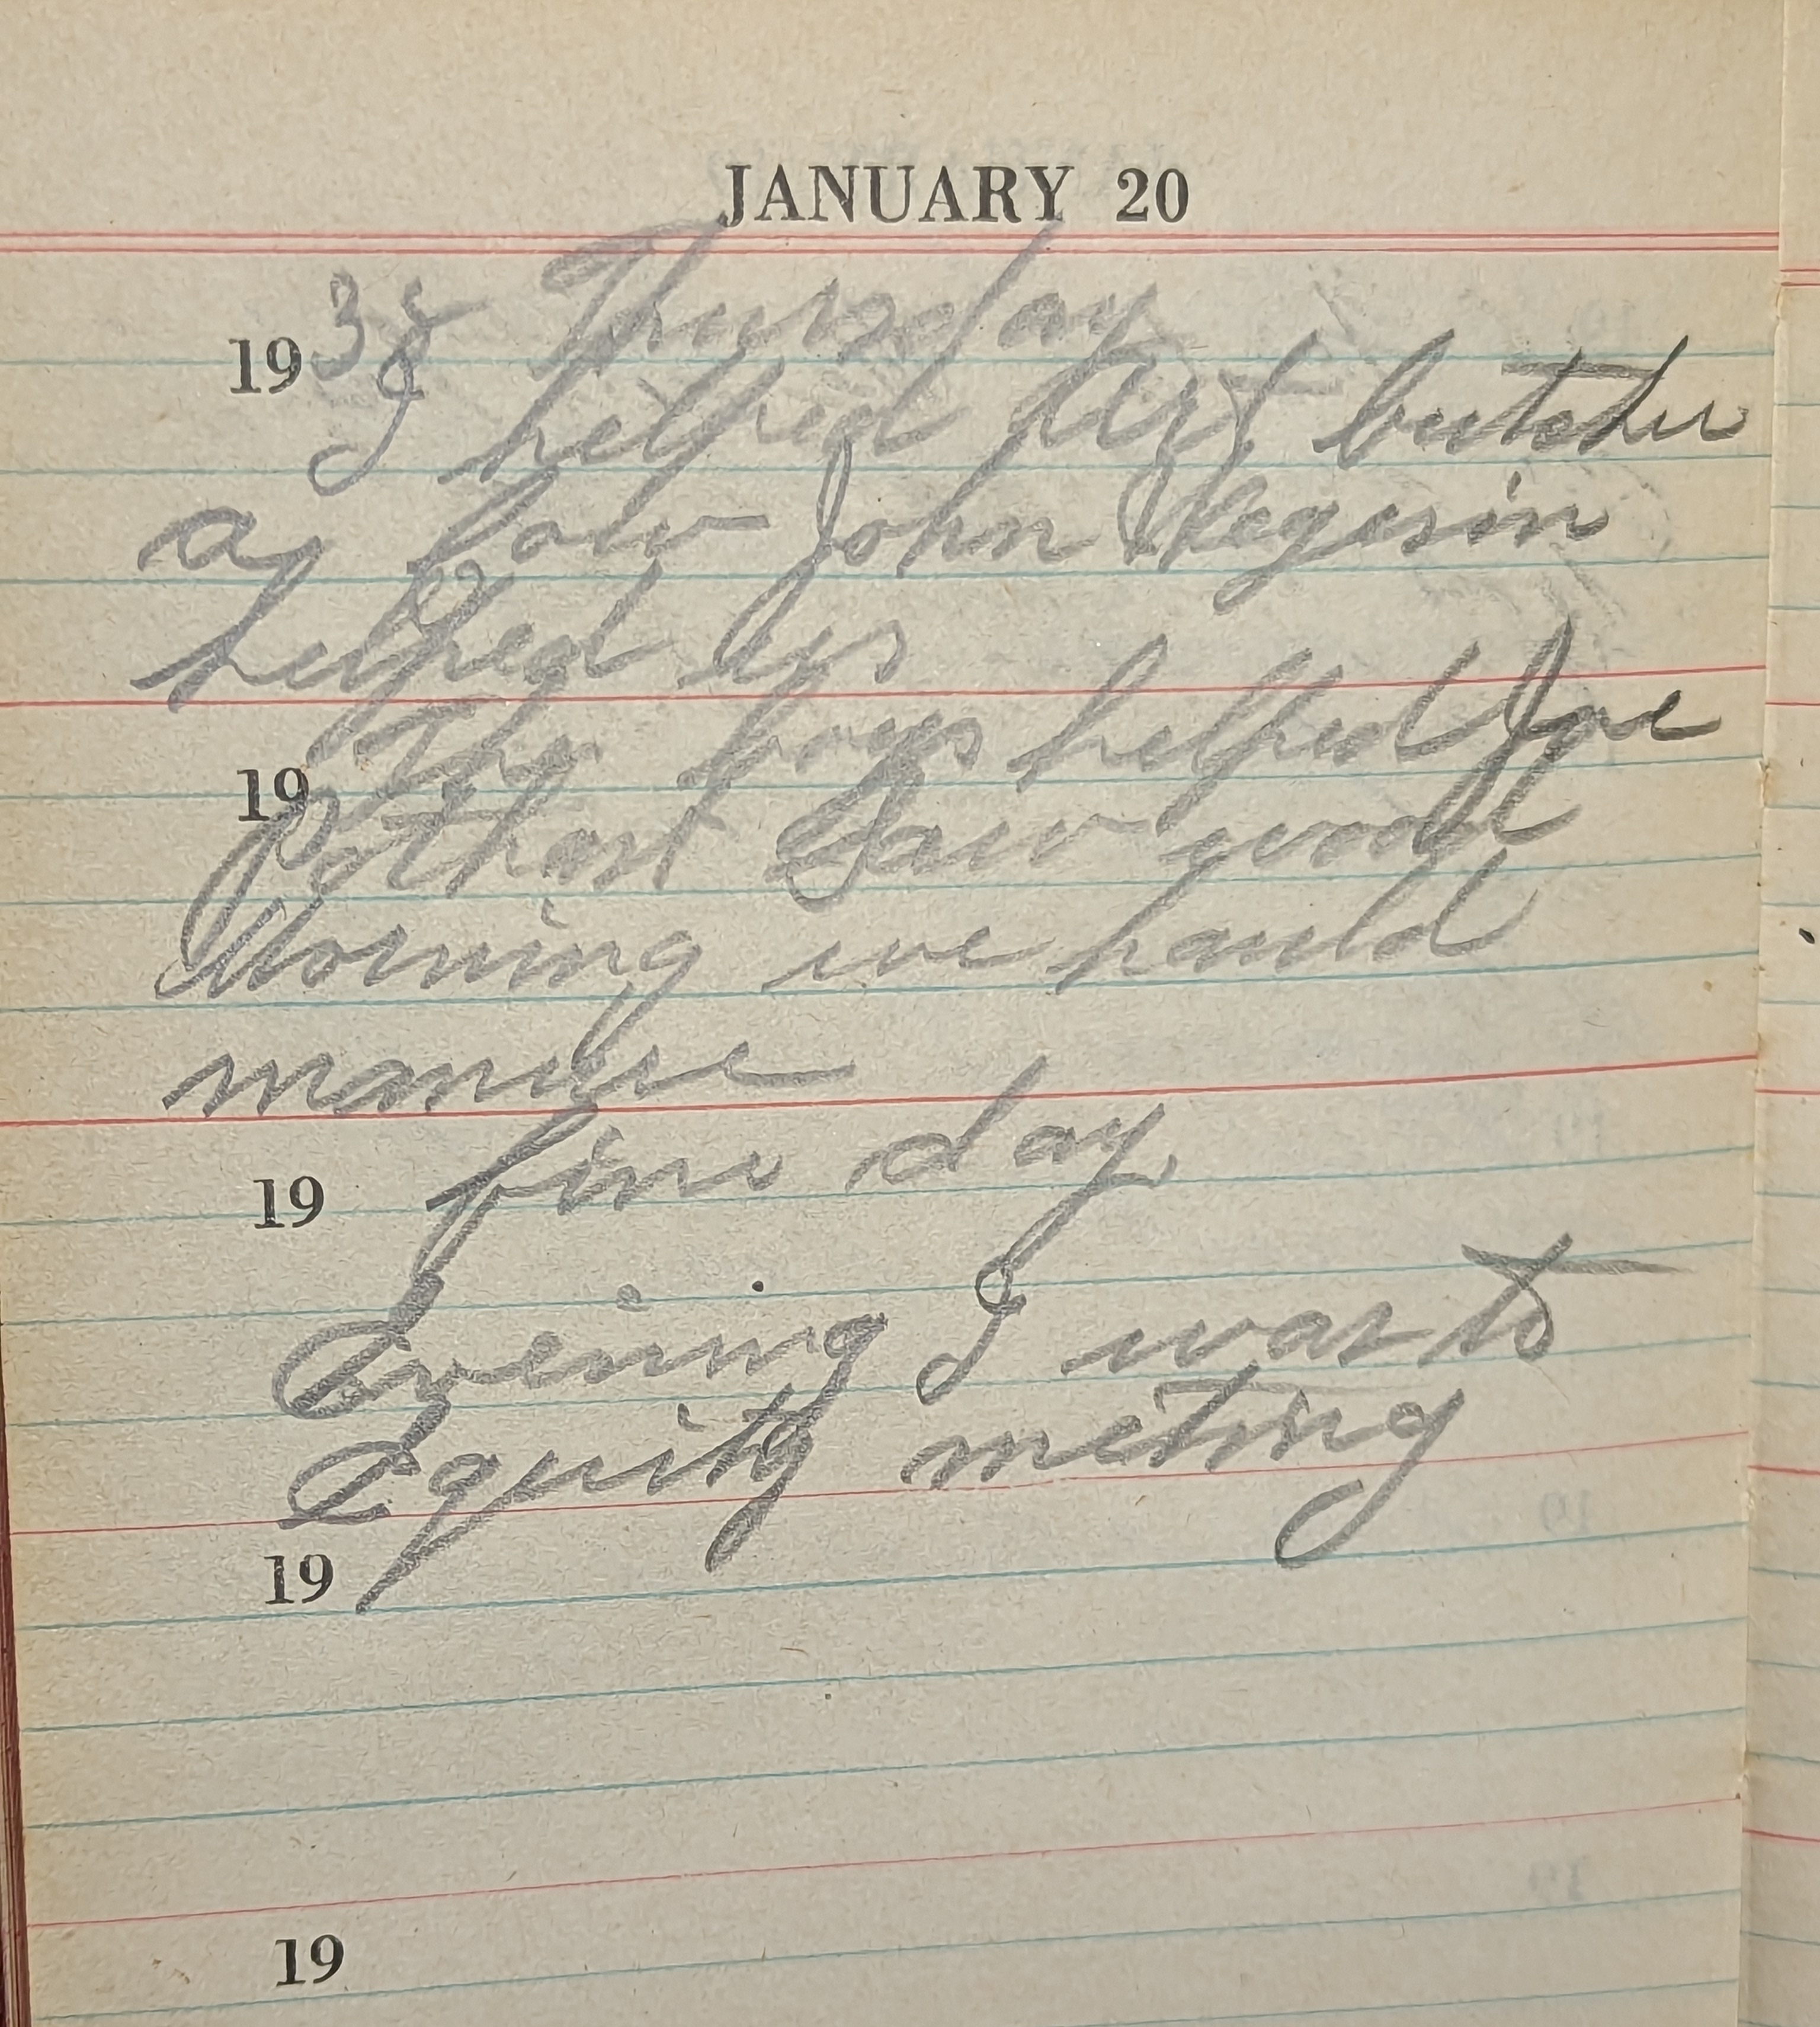 JANUARY 20
1938 Thursday
I helped Art butcher
a John
helped us
19 The boys helped Joe
Pothast Saw wood
Morning we hauld
manure
19 fine day
Evening I was to
Equity meting
19
19